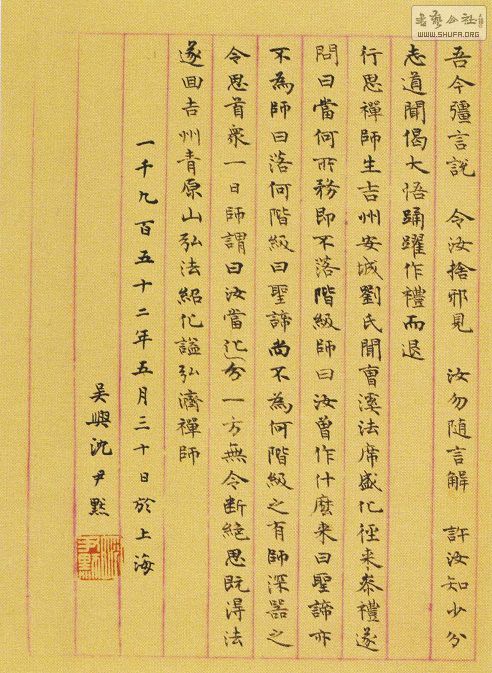 吾今彊言說 令汝捨邪見 汝勿随言解 許汝知少分
志道聞偈大悟踊躍作禮而退
行思禪師生吉州安城劉氏聞曹溪法席盛化徑来叅禮遂
問曰當何所務即不落階級師曰汝曾作什麽来曰聖諦亦
不為師曰落何階級曰聖諦尚不為何階級之有師深器之
令思首衆一日師謂曰汝當化分一方無令断絶思既得法
遂回吉州青原山弘法紹化謚弘濟禪師
一千九百五十二年五月三十日於上海
吴興沈尹默
沈尹默
書藝公社
WWW.SHUFA.ORG